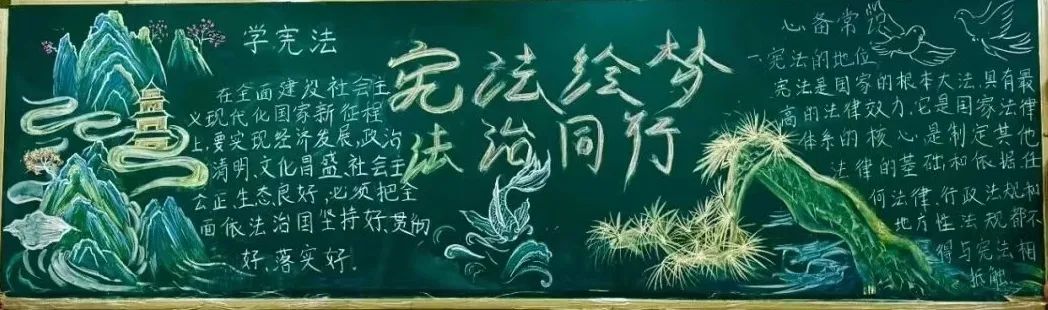 学宪法
在全面建设社会主
义现代化国家新征程
上,要实现经济发展,政治
清明,文化昌盛,社会主
公正,生态良好,必须把全
面依法治国坚持好,贯彻
好,落实好.
宪法绘梦
法治同行
必备常识
一、宪法的地位
宪法是国家的根本大法,具有最
高的法律效力,它是国家法律
体系的核心是制定其他
法律的基础和依据任
何法律,行政法规和
地方性法规都不
得与宪法相
抵触